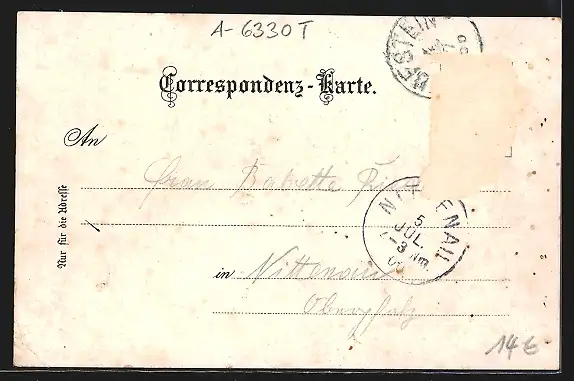 A-6330T
Correspondenz-Karte.
An
Frau Babette
in Nittenau
Oberpfalz
Nur für die Adresse
NITTENAU
5
JUL.
2-3 Nm.
14€